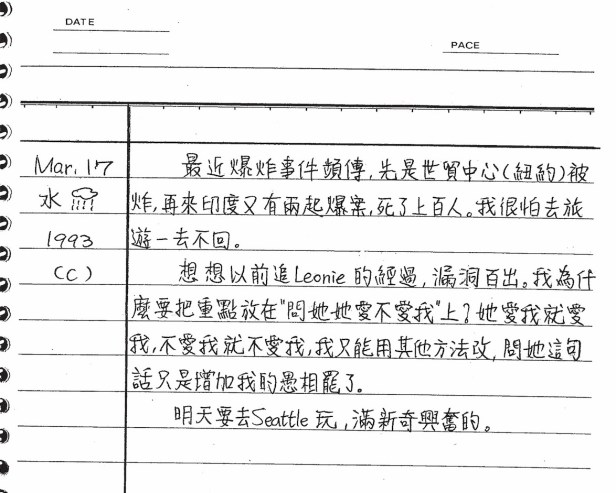 DATE
PAGE
Mar. 17
水
1993
(C)
最近爆炸事件頻傳,先是世貿中心(紐約)被
炸,再來印度又有兩起爆案,死了上百人。我很怕去旅
遊一去不回。
想想以前追Leonie的經過,漏洞百出。我為什
麼要把重點放在"問她她愛不愛我"上?她愛我就愛
我,不愛我就不愛我,我只能用其他方法改,問她這句
話只是增加我的愚相罷了。
明天要去Seattle玩,滿新奇興奮的。